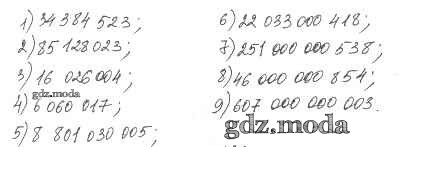 1) 34 384 523;
2) 85 128 023;
3) 16 026 004;
gdz.moda
4) 6 060 017;
5) 8 801 030 005;
6) 22 033 000 418;
7) 251 000 000 538;
8) 46 000 000 854;
9) 607 000 000 003.
gdz.moda